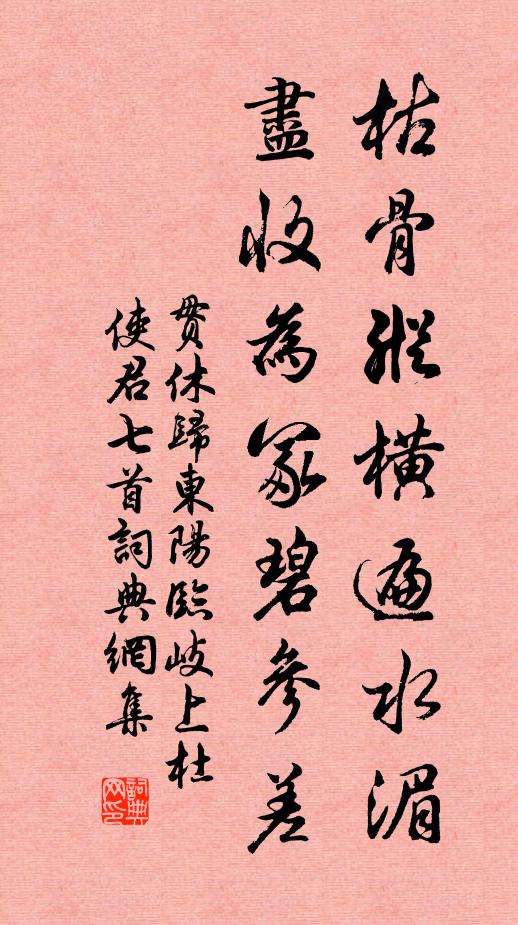 枯骨縱橫遍水湄
盡收為冢碧參差
貫休歸東陽臨岐上杜
使君七首詞典網集
詞典
网印